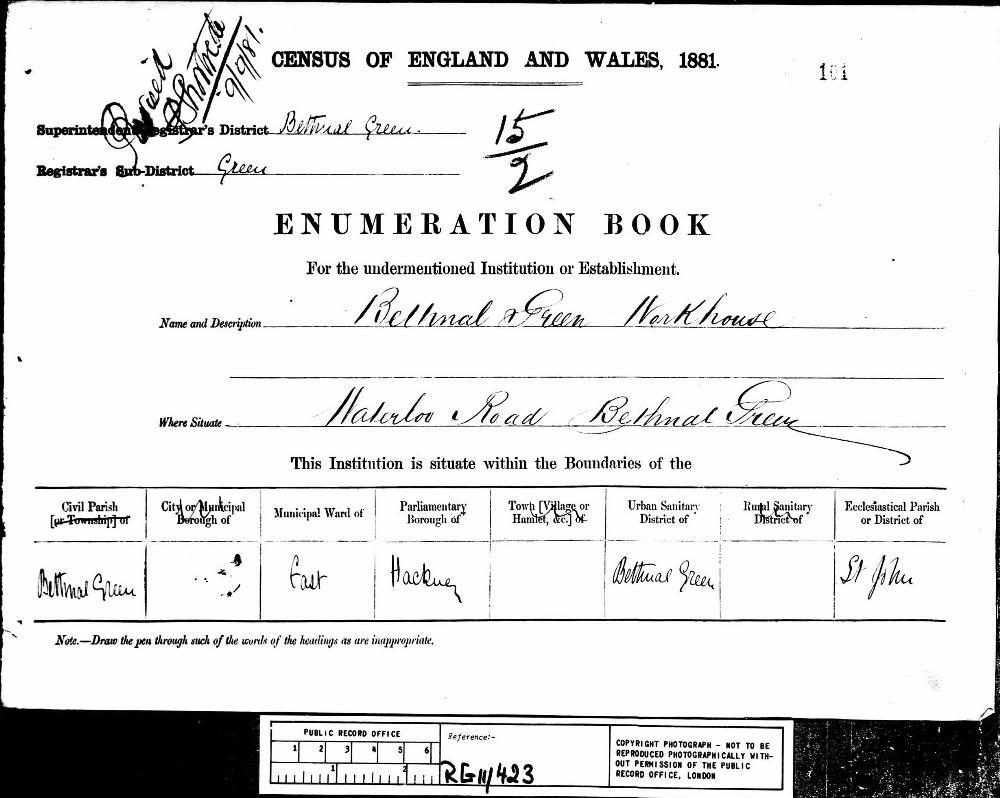 Revised
9/9/81.
CENSUS OF ENGLAND AND WALES, 1881.
161
Superintendent Registrar's District Bethnal Green.
15
2
Registrar's Sub-District Green
ENUMERATION BOOK
For the undermentioned Institution or Establishment.
Name and Description Bethnal Green Workhouse
Where Situate Waterloo Road Bethnal Green
This Institution is situate within the Boundaries of the
Civil Parish [or Township] of
City or Municipal Borough of
Municipal Ward of
Parliamentary Borough of
Town [Village or Hamlet, &c.] of
Urban Sanitary District of
Rural Sanitary District of
Ecclesiastical Parish or District of
Bethnal Green
East
Hackney
Bethnal Green
St John
Note.—Draw the pen through such of the words of the headings as are inappropriate.
PUBLIC RECORD OFFICE
1 2 3 4 5 6
1 2
Reference:-
RG 11/423
COPYRIGHT PHOTOGRAPH - NOT TO BE
REPRODUCED PHOTOGRAPHICALLY WITH-
OUT PERMISSION OF THE PUBLIC
RECORD OFFICE, LONDON